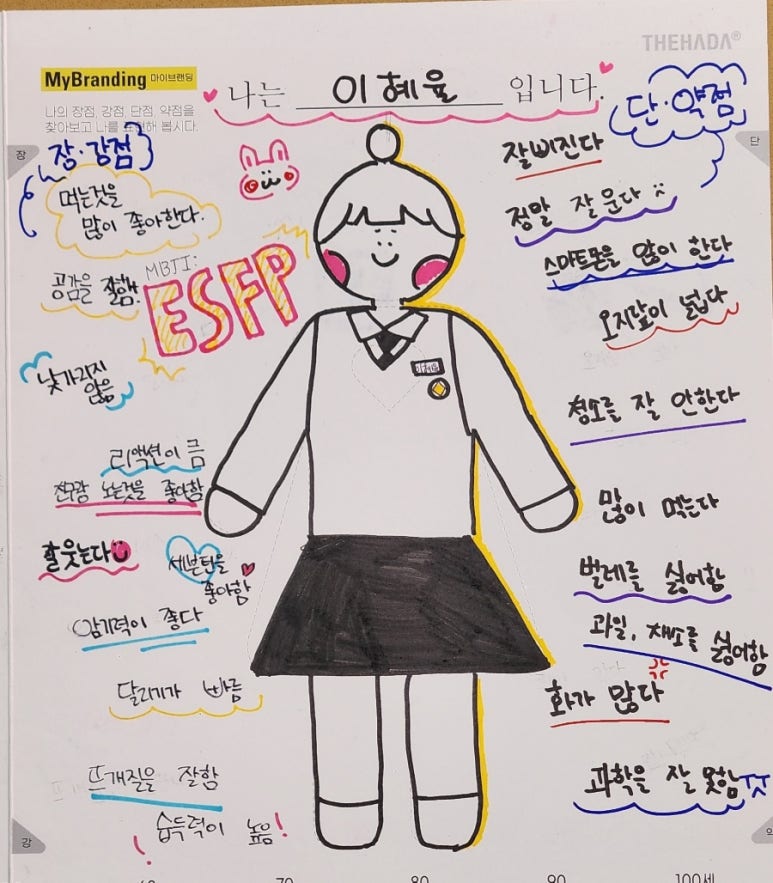 THEHADA®
MyBranding 마이브랜딩
나의 장점, 강점, 단점, 약점을
찾아보고 나를 표현해 봅시다.
나는 이혜율 입니다.
장
단
장·강점
먹는것을
많이 좋아한다.
공감을 잘함.
MBJI:
ESFP
낯가리지
않음
리액션이 큼
친구랑 노는것을 좋아함
잘웃는다
세븐틴을
좋아함
암기력이 좋다
달리기가 빠름
뜨개질을 잘함
습득력이 높음!
단·약점
잘삐진다
정말 잘 운다
스마트폰을 많이 한다
오지랖이 넓다
청소를 잘 안한다
많이 먹는다
벌레를 싫어함
과일, 채소를 싫어함
화가 많다
과학을 잘 못함ㅠㅠ
강
70
80
90
100세